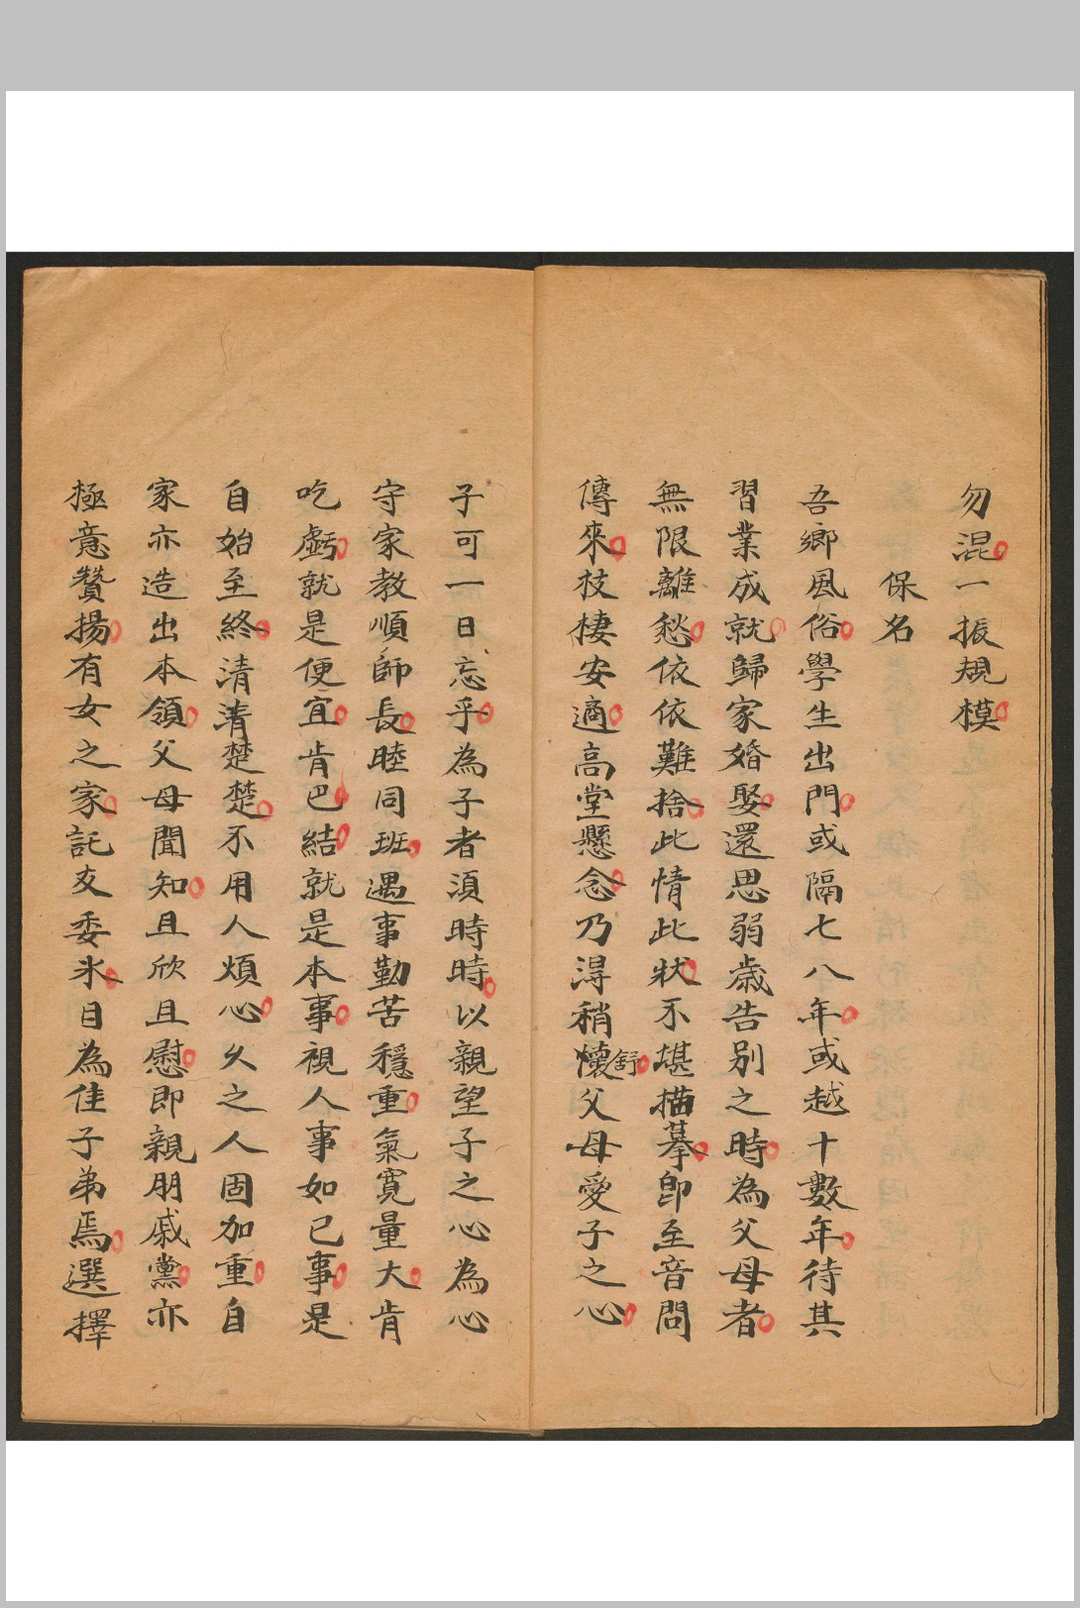 勿混一振規模
保名
吾鄉風俗學生出門或隔七八年或越十數年待其
習業成就歸家婚娶還思弱歲告別之時為父母者
無限離愁依依難捨此情此狀不堪描摹即至音問
傳來枝棲安適高堂懸念乃淂稍懷舒父母愛子之心
子可一日忘乎為子者須時時以親望子之心為心
守家教順師長睦同班遇事勤苦穩重氣寬量大肯
吃虧就是便宜肯巴結就是本事視人事如己事是
自始至終清清楚楚不用人煩心乆之人固加重自
家亦造出本領父母聞知且欣且慰即親朋戚黨亦
極意贊揚有女之家託友委氷目為佳子弟焉選擇